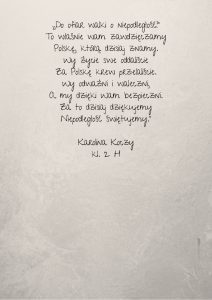 „Do ofiar walki o niepodległość"
To właśnie wam zawdzięczamy
Polskę, którą dzisiaj znamy.
Wy życie swe oddaliście
Za Polskę krew przelaliście.
Wy odważni i waleczni,
A my dzięki wam bezpieczni.
Za to dzisiaj dziękujemy
Niepodległość świętujemy."
Karolina Koczy
kl. 2 H